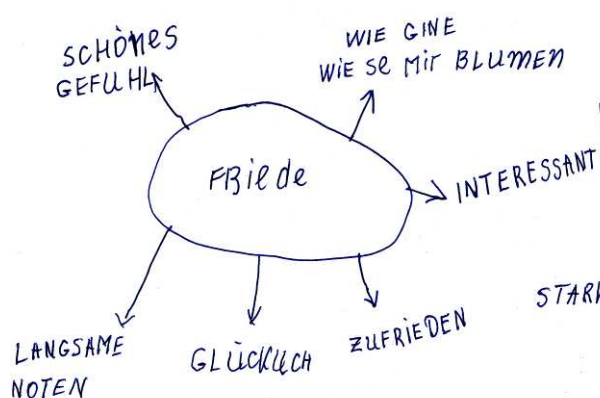 SCHÖNES
GEFUHL
WIE GINE
WIE SE MIR BLUMEN
FRiede
INTERESSANT
LANGSAME
NOTEN
GLÜCKLICH
ZUFRIEDEN
STARK